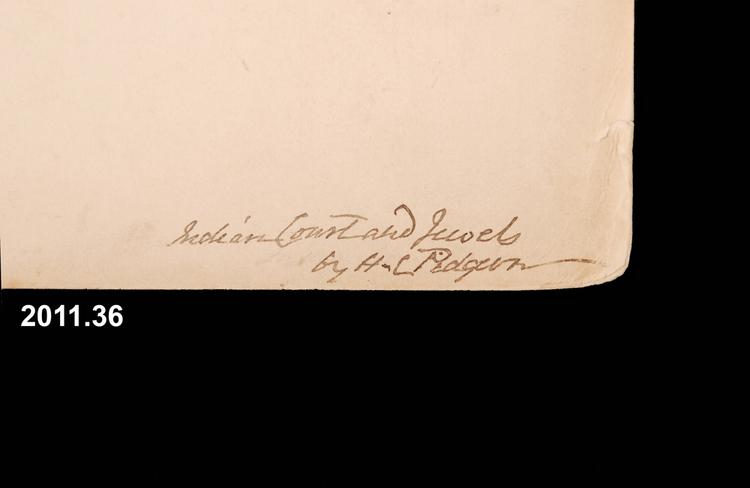 Indian Court and Jewels
by H. C Pidgeon
2011.36